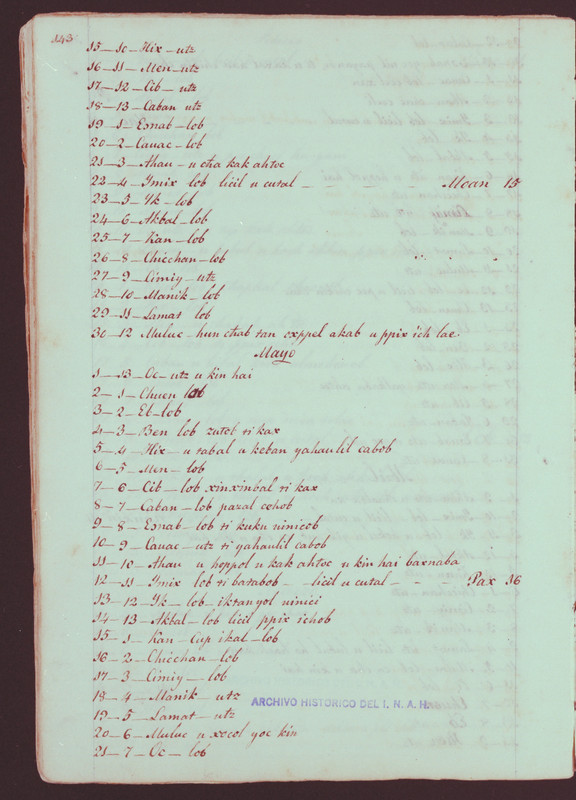 143
15—10—Hix—utz
16—11—Men—utz
17—12—Cib—utz
18—13—Caban utz
19—1—Esnab—lob
20—2—Cauac—lob
21—3—Ahau—u cha kak ahtoc
22—4—Ymix lob licil u cutal — — — — — Moan 15
23—5—Yk—lob
24—6—Akbal—lob
25—7—Kan—lob
26—8—Chicchan—lob
27—9—Cimiy—utz
28—10—Manik lob
29—11—Lamat lob
30—12—Muluc—hun chab tan oxppel akab u ppix ich lae.
Mayo
1—13—Oc—utz u kin hai
2—1—Chuen lob
3—2—Eb—lob
4—3—Ben lob zuteb ti kax
5—4—Hix—u tabal u keban yahaulil cabob
6—5—Men—lob
7—6—Cib—lob xinximbal ti kax
8—7—Caban—lob pazal cehob
9—8—Esnab—lob ti kuku uinicob
10—9—Cauac—utz ti yahaulil cabob
11—10—Ahau u hoppol u kak ahtoc u kin hai barnaba
12—11—Ymix lob ti batabob—licil u cutal — — Pax 16
13—12—Yk—lob—iktanyol uinici
14—13—Akbal—lob licil ppix ichob
15—1—Kan—Cup ikal—lob
16—2—Chicchan—lob
17—3—Cimiy—lob
18—4—Manik utz
19—5—Lamat—utz
20—6—Muluc u xocol yoc kin
21—7—Oc—lob
ARCHIVO HISTORICO DEL I. N. A. H.